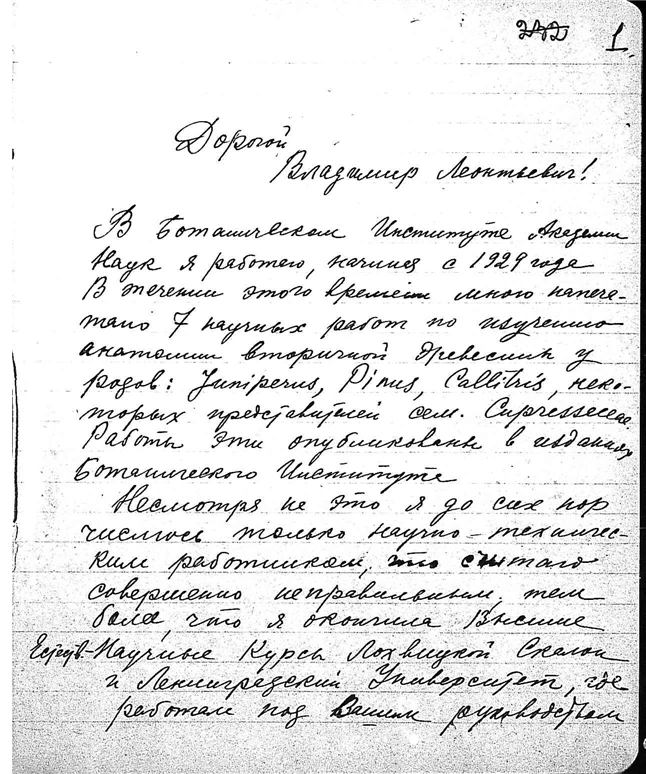 272 1.
Дорогой
Владимир Леонтьевич!
В Ботаническом Институте Академии
Наук я работаю, начиная с 1929 года
В течении этого времени мною напече-
тано 7 научных работ по изучению
анатомии вторичной древесины у
родов: Juniperus, Pinus, Callitris, неко-
торых представителей сем. Cupressaceae
Работы эти опубликованы в изданиях
Ботанического Института
Несмотря на это я до сих пор
числюсь только научно-техничес-
ким работником, что считаю
совершенно неправильным, тем
более, что я окончила Высшие
Естеств-Научные Курсы Лохвицкой Скалон
и Ленинградский Университет, где
работала под Вашим руководством